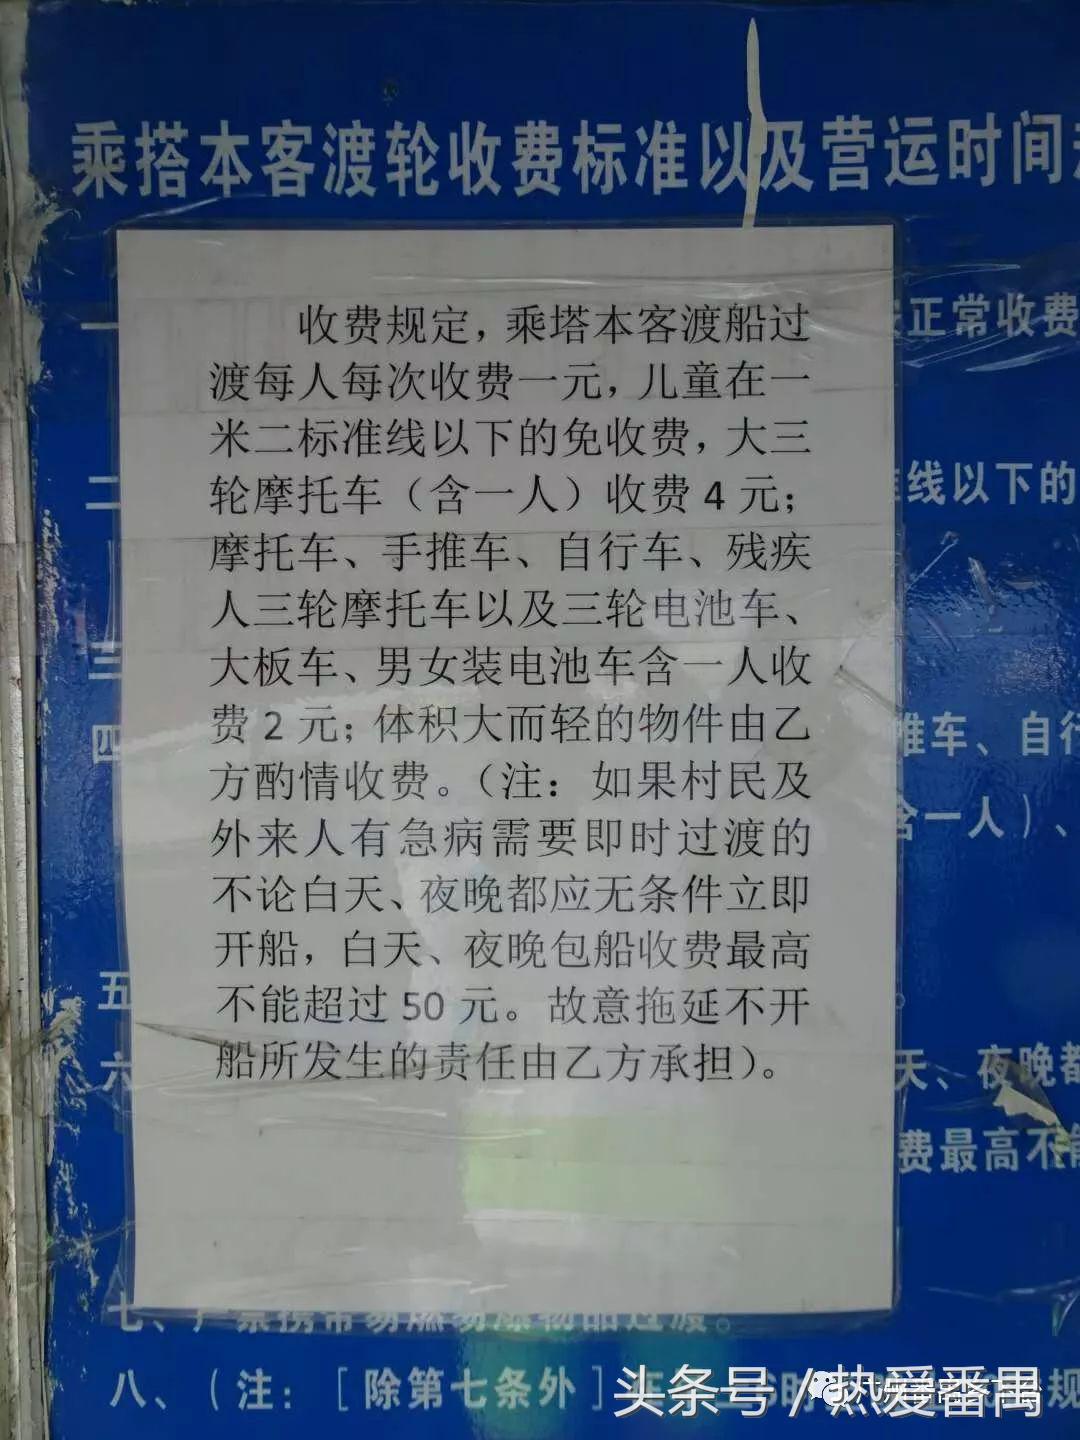 乘搭本客渡轮收费标准以及营运时间
收费规定，乘塔本客渡船过
渡每人每次收费一元，儿童在一
米二标准线以下的免收费，大三
轮摩托车（含一人）收费 4 元；
摩托车、手推车、自行车、残疾
人三轮摩托车以及三轮电池车、
大板车、男女装电池车含一人收
费 2 元；体积大而轻的物件由乙
方酌情收费。（注：如果村民及
外来人有急病需要即时过渡的
不论白天、夜晚都应无条件立即
开船，白天、夜晚包船收费最高
不能超过 50 元。故意拖延不开
船所发生的责任由乙方承担）。
一
正常收费
二
线以下的
三
四
推车、自行
含一人）、
五
六
天、夜晚都
费最高不能
七、严禁携带易燃易爆物品过渡。
八、（注：［除第七条外］
头条号／热爱番禺